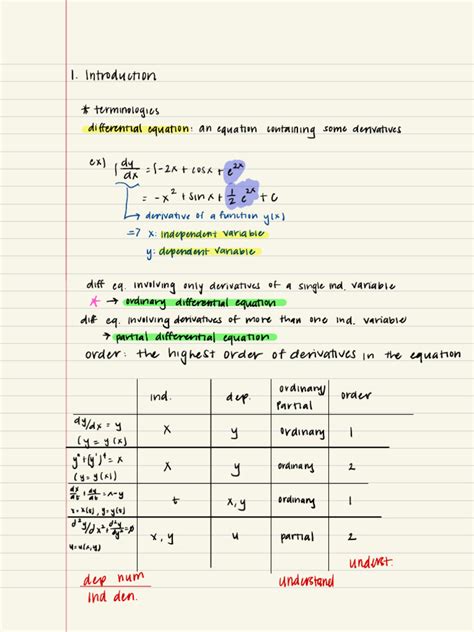 1. Introduction
* terminologies
differential equation: an equation containing some derivatives
ex) ∫ dy/dx = ∫ -2x + cosx + e^2x
= -x² + sinx + 1/2 e^2x + C
→ derivative of a function y(x)
=> x: independent variable
y: dependent variable
diff eq. involving only derivatives of a single ind. variable
* → ordinary differential equation
diff eq. involving derivatives of more than one ind. variable
→ partial differential equation
order: the highest order of derivatives in the equation
ind. dep. ordinary/partial order
dy/dx = y (y = y(x) x y ordinary 1
y" + (y')⁴ = x (y = y(x) x y ordinary 2
dx/dt + dy/dt = x-y x = x(t), y = y(t) t x,y ordinary 1
d²y/dx² + d²y/dy² = 0 u = u(x,y) x,y u partial 2
dep num
ind den.
understand
underst.